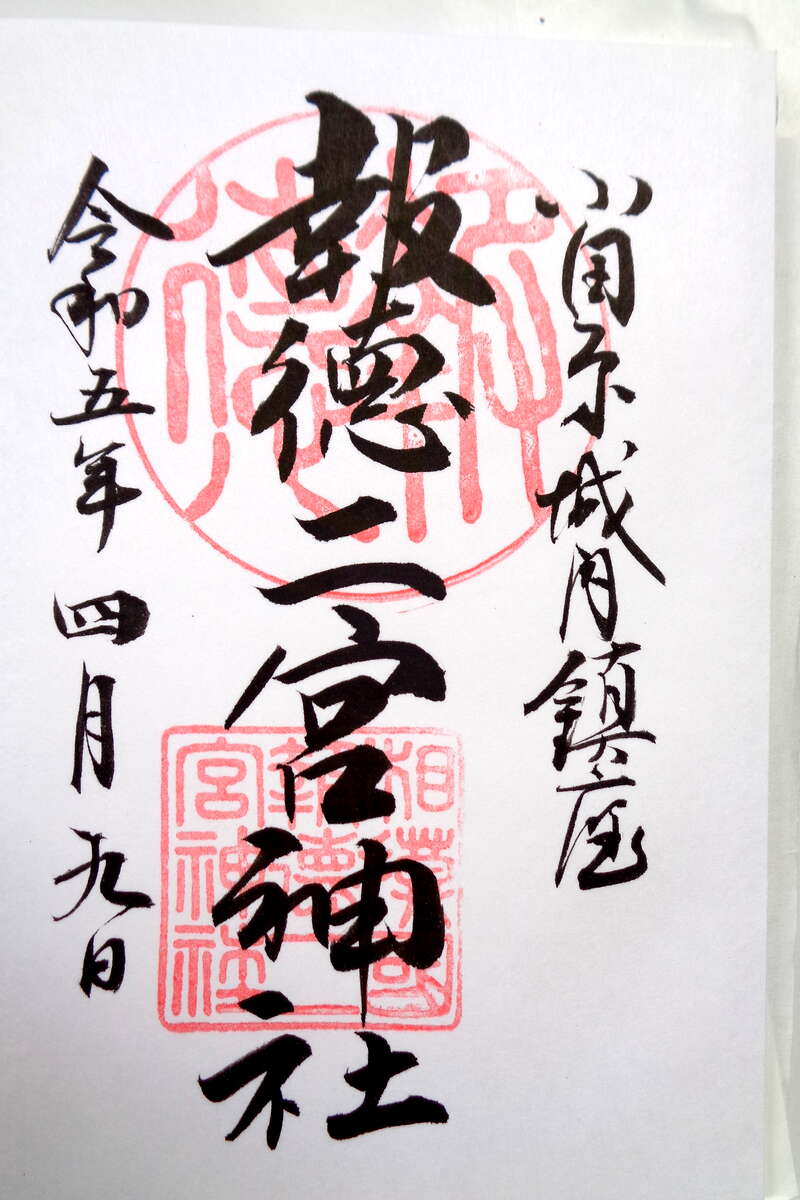 小田原城内鎮座
報徳二宮神社
令和五年四月九日
相模國
報徳二
宮神社